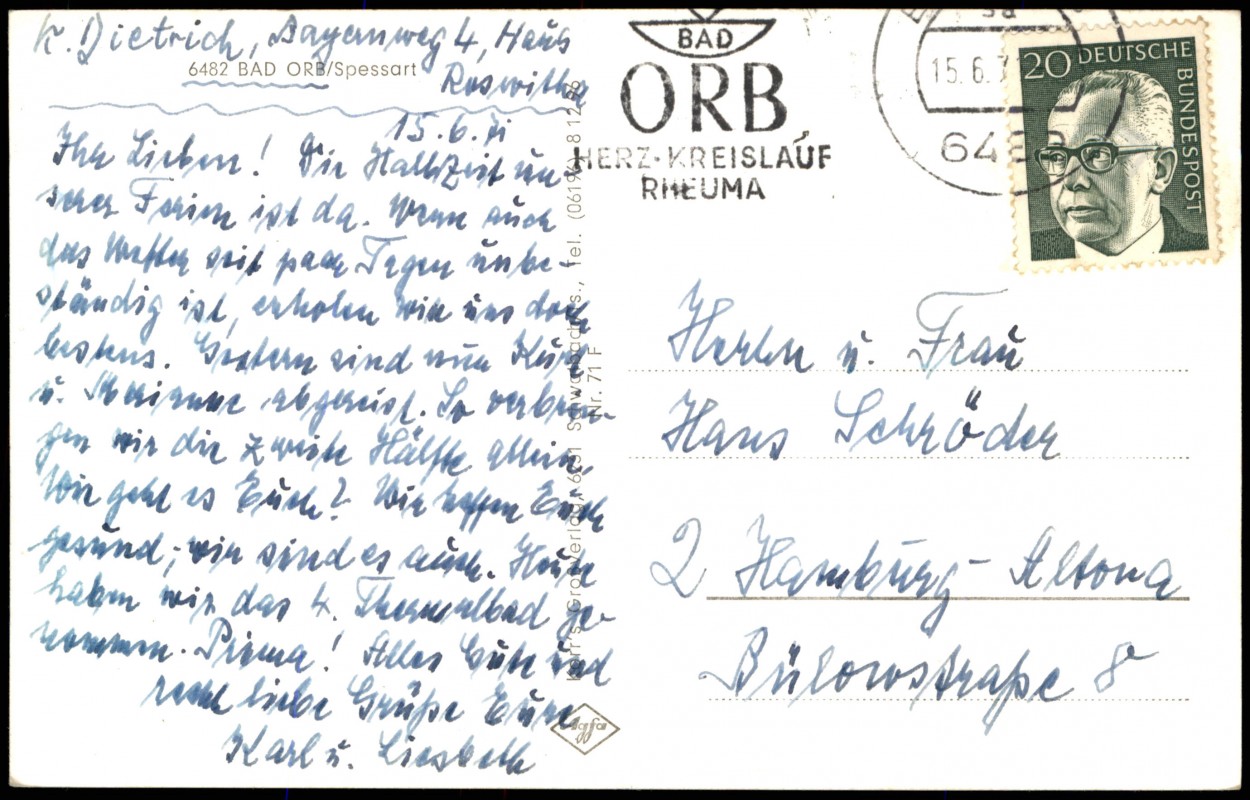 K. Dietrich, Bayernweg 4, Haus
6482 BAD ORB/Spessart
Roswitha
15.6.71
Ihr Lieben! Die Halbzeit un-
serer Ferien ist da. Wenn auch
das Wetter seit paar Tagen unbe-
ständig ist, erholen wir uns doch
bestens. Gestern sind nun Kurt
u. Marianne abgereist. So verbrin-
gen wir die zweite Hälfte allein.
Wie geht es Euch? Wir hoffen Euch
gesund, wir sind es auch. Heute
haben wir das 4. Thermalbad ge-
nommen. Prima! Alles Gute und
recht liebe Grüße Eure
Karl u. Liesbeth
Gro-Verlag, Tel. (06196) 8 12
Nr. 71 F
Agfa
BAD
ORB
HERZ-KREISLAUF
RHEUMA
15.6.7
6482
20 DEUTSCHE
BUNDESPOST
Herrn u. Frau
Hans Schröder
2 Hamburg-Altona
Bülowstraße 8